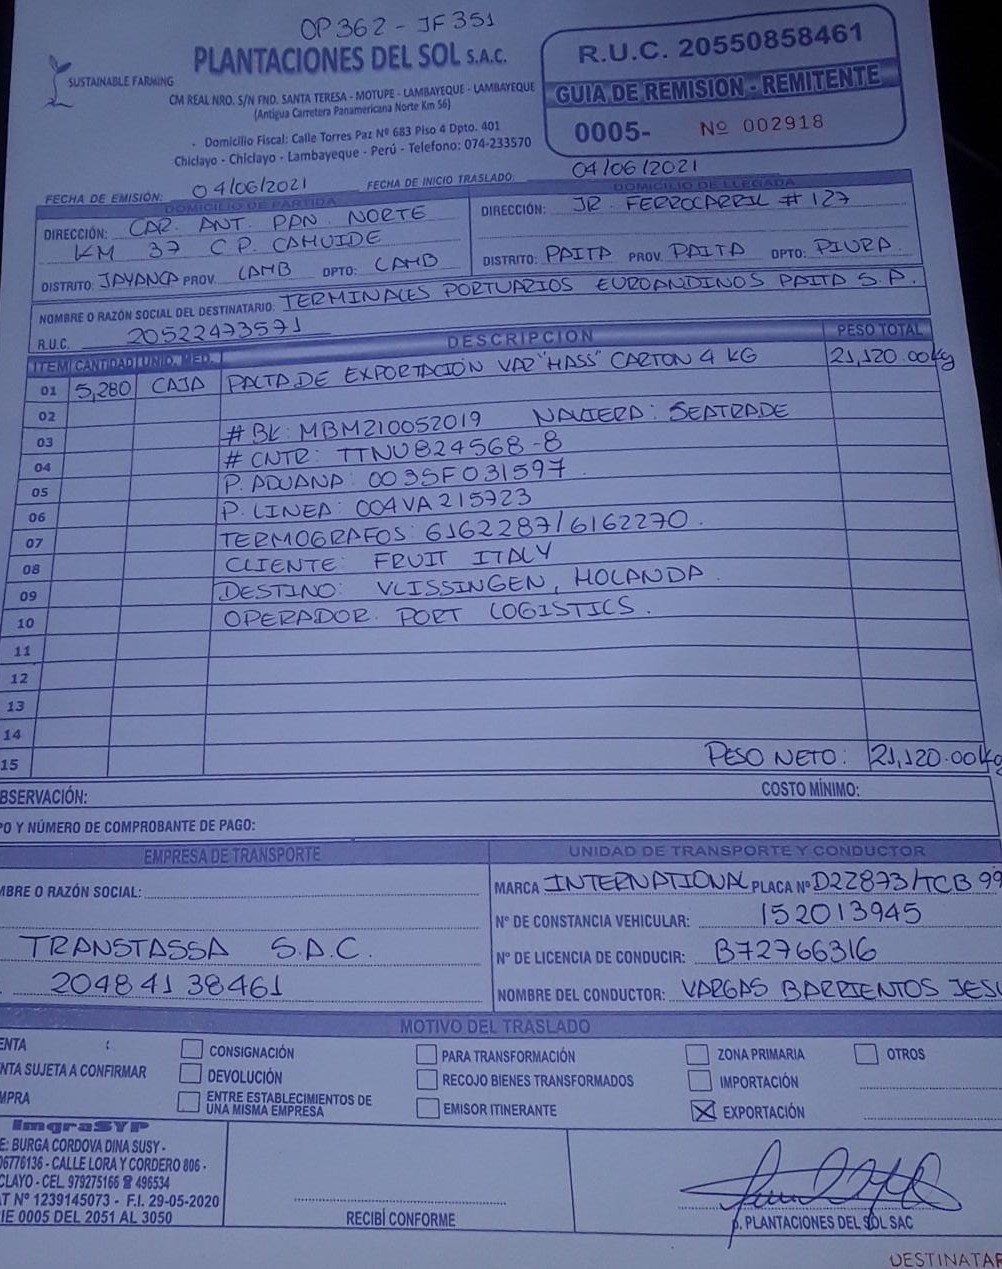 OP 362 - JF 351
PLANTACIONES DEL SOL S.A.C.
SUSTAINABLE FARMING
CM REAL NRO. S/N FND. SANTA TERESA - MOTUPE - LAMBAYEQUE - LAMBAYEQUE
(Antigua Carretera Panamericana Norte Km 56)
Domicilio Fiscal: Calle Torres Paz Nº 683 Piso 4 Dpto. 401
Chiclayo - Chiclayo - Lambayeque - Perú - Telefono: 074-233570
R.U.C. 20550858461
GUIA DE REMISION - REMITENTE
0005- Nº 002918
FECHA DE EMISIÓN: 04/06/2021 FECHA DE INICIO TRASLADO: 04/06/2021
DOMICILIO DE PARTIDA
DIRECCIÓN: CAR. ANT. PAN. NORTE
KM 37 C P. CAHUIDE
DISTRITO: JAYANCA PROV. LAMB DPTO: LAMB
DOMICILIO DE LLEGADA
DIRECCIÓN: JR. FERROCARRIL # 127
DISTRITO: PAITA PROV. PAITA DPTO: PIURA.
NOMBRE O RAZÓN SOCIAL DEL DESTINATARIO: TERMINALES PORTUARIOS EUROANDINOS PAITA S.A.
R.U.C. 20522473571
ITEM CANTIDAD UNID. MED. DESCRIPCION PESO TOTAL
01 5,280 CAJA PALTA DE EXPORTACIÓN VAR "HASS" CARTON 4 KG 21,120.00kg
02
03 # BK: MBM210052019 NAVIERA: SEATRADE
04 # CNTR: TTNU824568-8
05 P. ADUANA: 0035F031597
06 P. LINEA: 004VA215723
07 TERMOGRAFOS: 6162287/6162270.
08 CLIENTE: FRUIT ITALY
09 DESTINO: VLISSINGEN, HOLANDA.
10 OPERADOR: PORT LOGISTICS.
11
12
13
14
15 PESO NETO: 21,120.00kg
BSERVACIÓN:
COSTO MÍNIMO:
PO Y NÚMERO DE COMPROBANTE DE PAGO:
EMPRESA DE TRANSPORTE
MBRE O RAZÓN SOCIAL:
TRANSTASSA S.A.C.
20484138461
UNIDAD DE TRANSPORTE Y CONDUCTOR
MARCA INTERNATIONAL PLACA Nº D2Z873/TCB 99
Nº DE CONSTANCIA VEHICULAR: 152013945
Nº DE LICENCIA DE CONDUCIR: B72766316
NOMBRE DEL CONDUCTOR: VARGAS BARRIENTOS JESU
MOTIVO DEL TRASLADO
ENTA
NTA SUJETA A CONFIRMAR
MPRA
CONSIGNACIÓN
DEVOLUCIÓN
ENTRE ESTABLECIMIENTOS DE
UNA MISMA EMPRESA
PARA TRANSFORMACIÓN
RECOJO BIENES TRANSFORMADOS
EMISOR ITINERANTE
ZONA PRIMARIA
IMPORTACIÓN
X EXPORTACIÓN
OTROS
ImgraSYP
E: BURGA CORDOVA DINA SUSY -
06776136 - CALLE LORA Y CORDERO 806 -
CLAYO - CEL. 979275166 ☎ 496534
T Nº 1239145073 - F.I. 29-05-2020
IE 0005 DEL 2051 AL 3050
RECIBÍ CONFORME
p. PLANTACIONES DEL SOL SAC
DESTINATAR